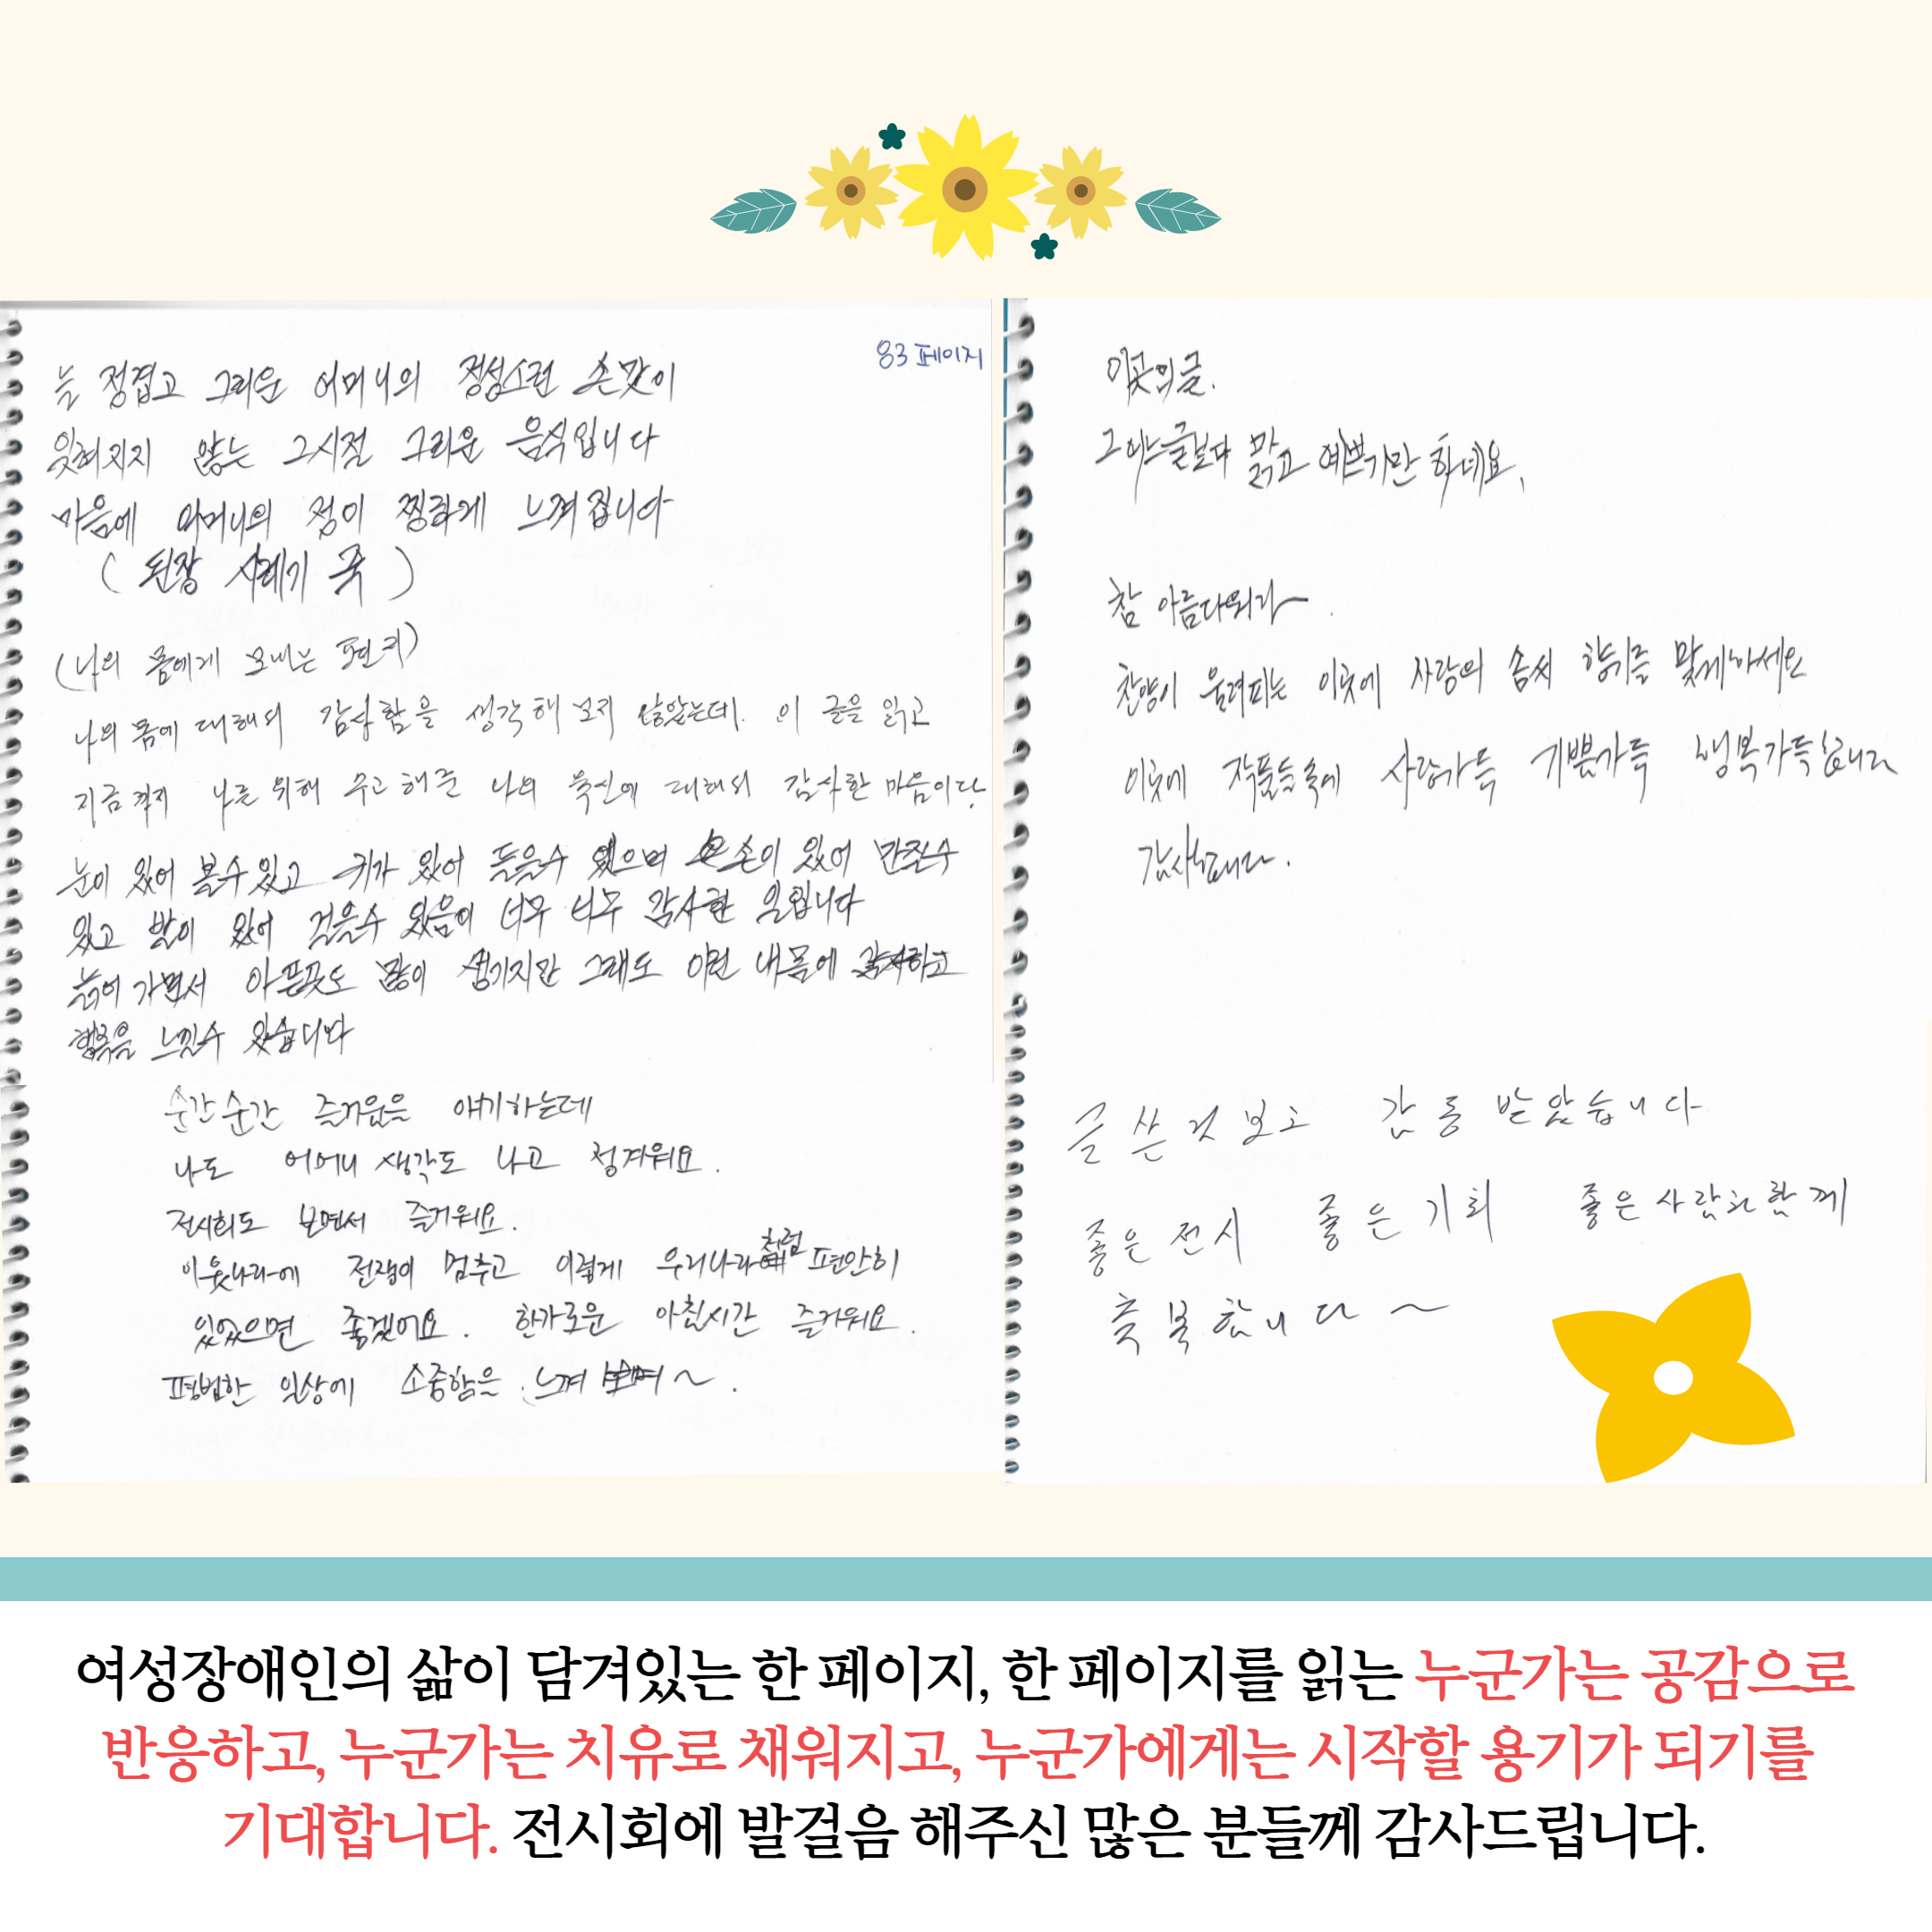 83 페이지
늘 정겹고 그리운 어머니의 정성스런 손맛이
잊혀지지 않는 그시절 그리운 음식입니다
마음에 어머니의 정이 찡하게 느껴집니다
( 된장 시레기 국 )
(나의 몸에게 보내는 편지)
나의 몸에 대해서 감사함을 생각해 보지 않았는데. 이 글을 읽고
지금 까지 나를 위해 수고 해준 나의 육신에 대해서 감사한 마음이다.
눈이 있어 볼수있고 귀가 있어 들을수 있으며 손이 있어 만질수
있고 발이 있어 걸을수 있음이 너무 너무 감사한 일입니다
늙어 가면서 아픈곳도 많이 생기지만 그래도 이런 내몸에 감사하고
행복을 느낄수 있습니다
순간순간 즐거움을 얘기하는데
나도 어머니 생각도 나고 정겨워요.
전시회도 보면서 즐거워요.
이웃나라에 전쟁이 멈추고 이렇게 우리나라처럼 편안히
있었으면 좋겠어요. 한가로운 아침시간 즐거워요.
평범한 일상에 소중함을 느껴 보며~.
이곳의 글.
그 어느글보다 맑고 예쁘기만 하네요.
참 아름다워라~.
찬양이 울려퍼지는 이곳에 사랑의 솜씨 향기를
이곳에 작품들속에 사랑가득 기쁨가득 행복가득합니다
감사합니다.
글 쓴 것 보고 감동 받았습니다
좋은 전시 좋은 기회 좋은 사람과 함께
축복합니다~
여성장애인의 삶이 담겨있는 한 페이지, 한 페이지를 읽는 누군가는 공감으로
반응하고, 누군가는 치유로 채워지고, 누군가에게는 시작할 용기가 되기를
기대합니다. 전시회에 발걸음 해주신 많은 분들께 감사드립니다.